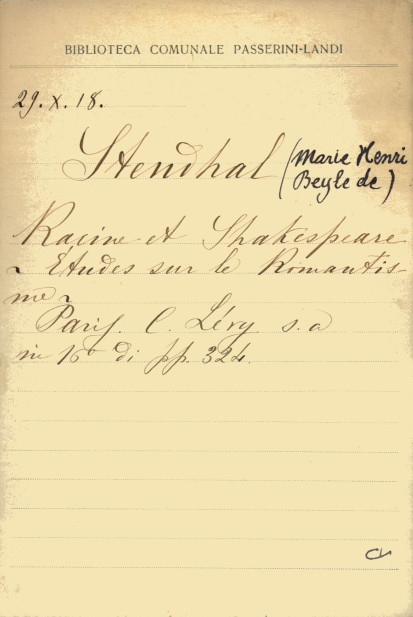 BIBLIOTECA COMUNALE PASSERINI-LANDI
29.X.18.
Stendhal (Marie Henri
Beyle de)
Racine et Shakespeare
~ Etudes sur le Romantis-
me ~
Paris. C. Lévy s. a
in 16° di pp. 324.